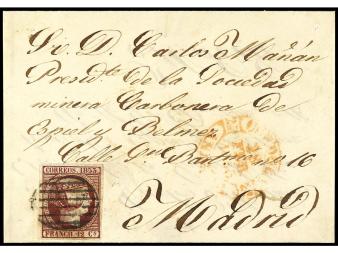 Sr. D. Carlos Mañán
Presid.te de la Sociedad
minera Carbonera de
Espiel y Belmez
Calle Sn Bartmano 16
Madrid
CORREOS. 1853
FRANCO. 12 Cs